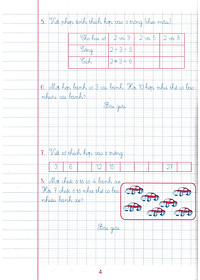 5. Viết phép tính thích hợp vào ô trống (theo mẫu):
Cho hai số 2 và 3 2 và 5 2 và 8
Tổng 2 + 3 = 5
Tích
6. Mỗi hộp bánh có 3 cái bánh. Hỏi 10 hộp như thế có bao
nhiêu cái bánh?
Bài giải
7. Viết số thích hợp vào ô trống:
3 6 12 15 27
8. Mỗi chiếc ô tô có 4 bánh xe.
Hỏi 7 chiếc ô tô như thế có bao
nhiêu bánh xe?
Bài giải
4